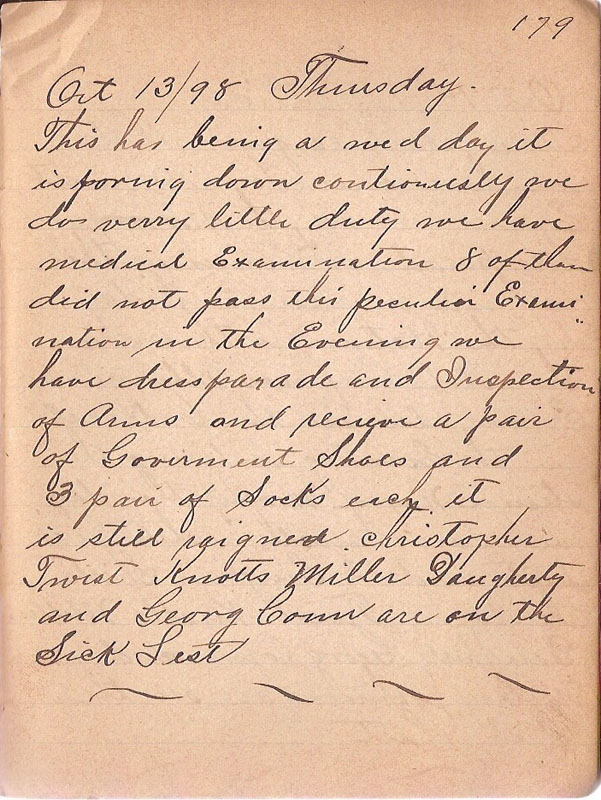 179
Oct 13/98 Thursday.
This has being a wed day it
is poring down contionuesly we
do verry little duty we have
medical Examination 8 of them
did not pass this peculiar Exami-
nation in the Evening we
have dress parade and Inspection
of Arms and recieve a pair
of Goverment Shoes and
3 pair of Socks each. it
is still raigned. Christopher
Twist Knotts Miller Daugherty
and Georg Conn are on the
Sick Lest